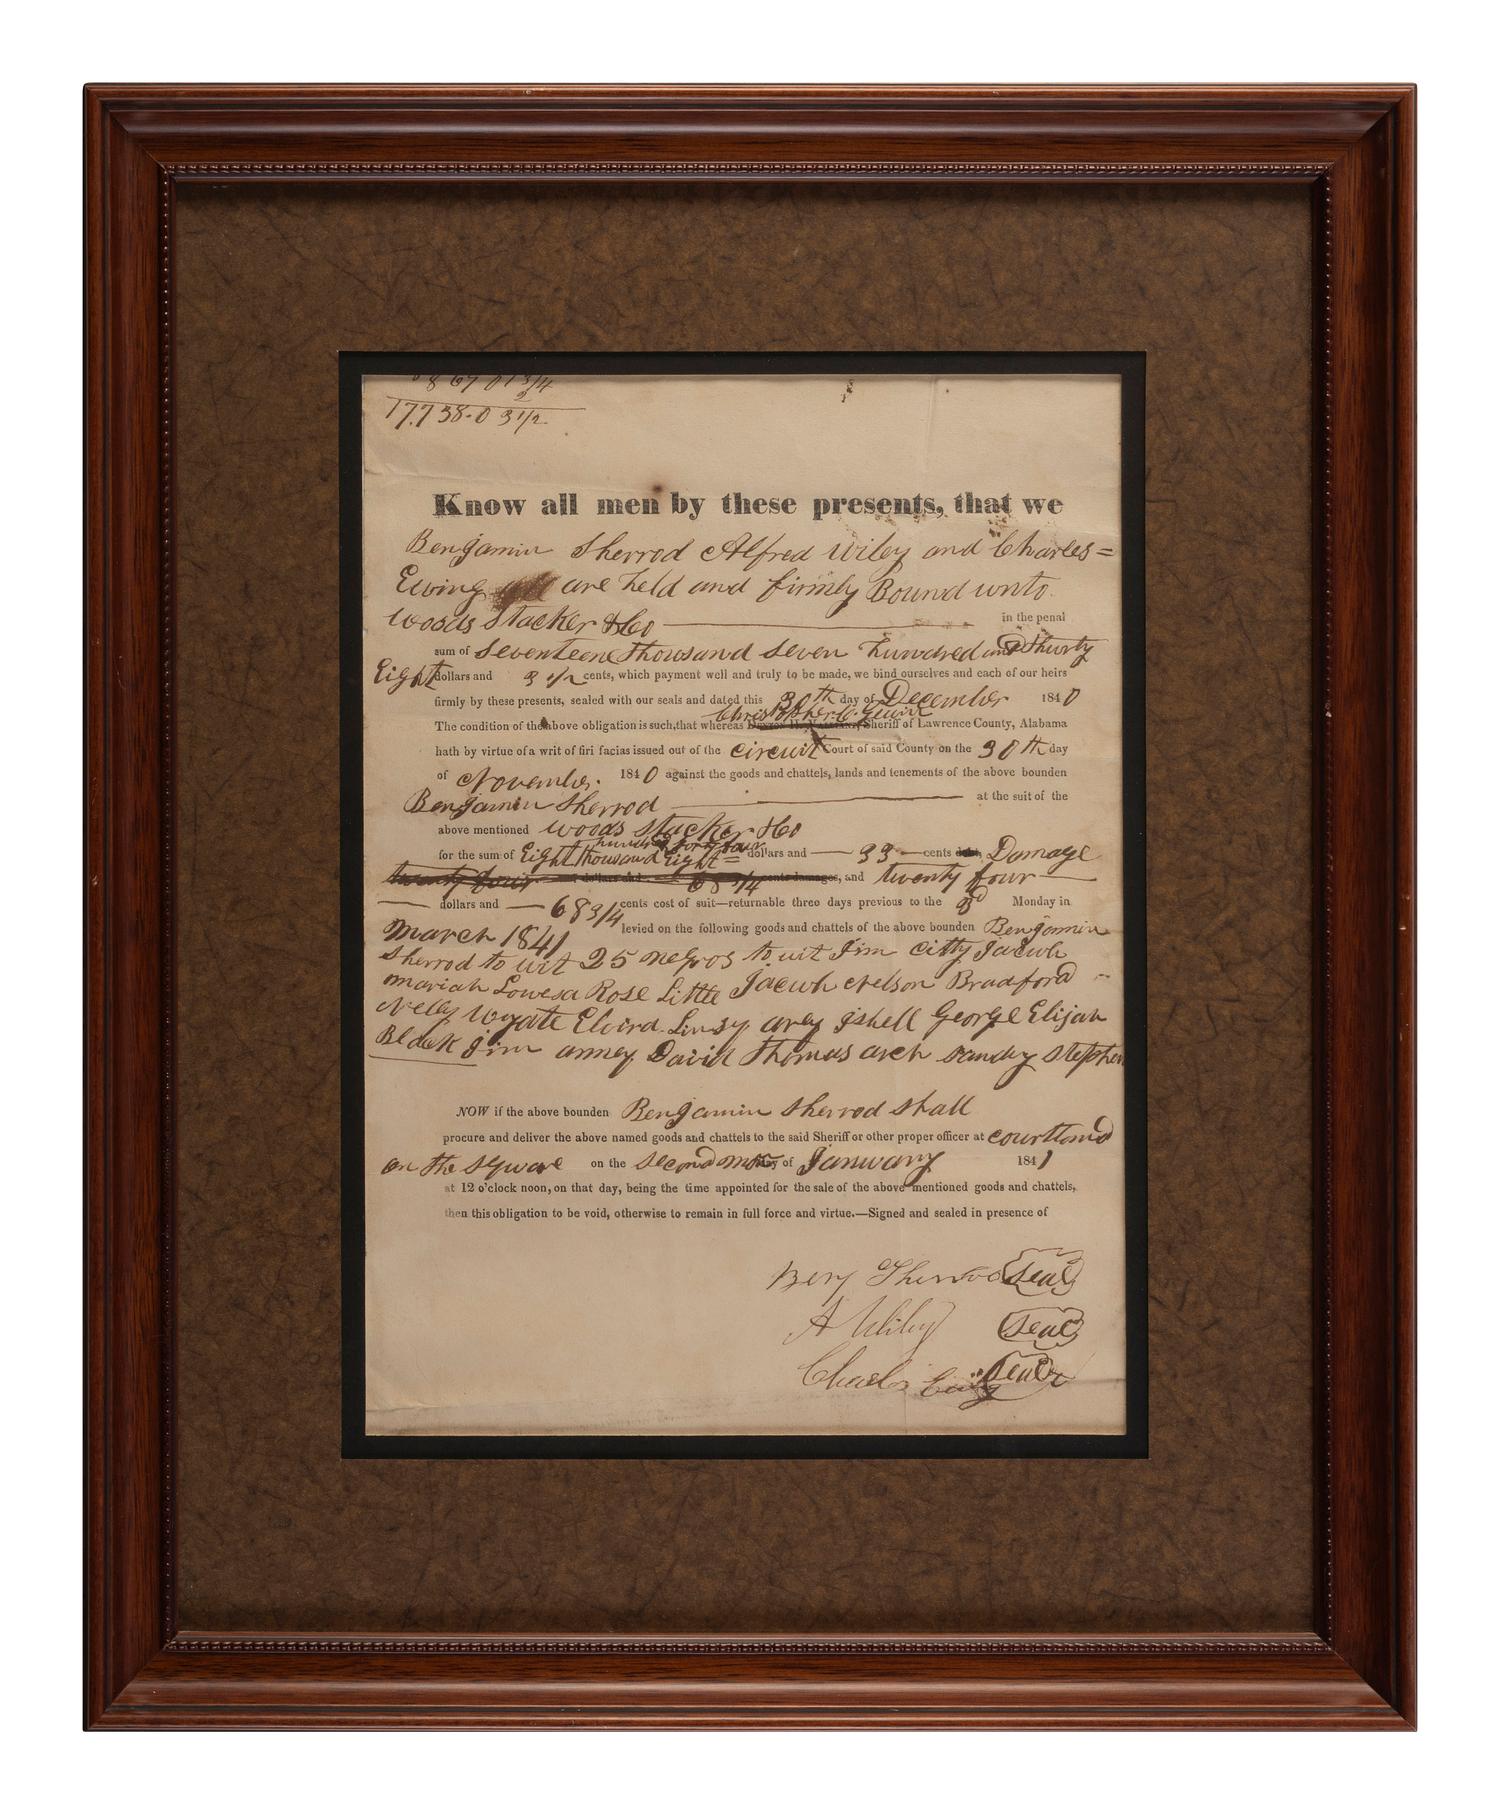 8 67 01 3/4
2
17.738.03 1/2
Know all men by these presents, that we
Benjamin Sherrod Alfred Wiley and Charles=
Ewing are held and firmly Bound unto
Woods Stacker & Co in the penal
sum of Seventeen Thousand Seven hundred and Thirty
Eight dollars and 3 1/2 cents, which payment well and truly to be made, we bind ourselves and each of our heirs
firmly by these presents, sealed with our seals and dated this 30th day of December 1840
Christopher C. Gewin
The condition of the above obligation is such, that whereas Sheriff of Lawrence County, Alabama
hath by virtue of a writ of firi facias issued out of the circuit Court of said County on the 30th day
of November 1840 against the goods and chattels, lands and tenements of the above bounden
Benjamin Sherrod at the suit of the
above mentioned Woods Stacker & Co
hundred forty four
for the sum of Eight Thousand Eight = dollars and 33 cents debt, Damage
twenty four dollars and 68 3/4 cents damages, and twenty four
dollars and 68 3/4 cents cost of suit—returnable three days previous to the 3d Monday in
March 1841 levied on the following goods and chattels of the above bounden Benjamin
Sherrod to wit 25 negros to wit Jim Citty Jacob
Mariah Lowesa Rose Little Jacob Nelson Bradford
Nelly Wyatt Elvird Linsy arey Ishell George Elijah
Black Jim anney David Thomas arch sandy stephen
NOW if the above bounden Benjamin Sherrod shall
procure and deliver the above named goods and chattels to the said Sheriff or other proper officer at Courtland
on the square on the second mon day of January 1841
at 12 o'clock noon, on that day, being the time appointed for the sale of the above mentioned goods and chattels,
then this obligation to be void, otherwise to remain in full force and virtue.—Signed and sealed in presence of
Benj Sherrod Seal
A Wiley Seal
Charles Ewing Seal